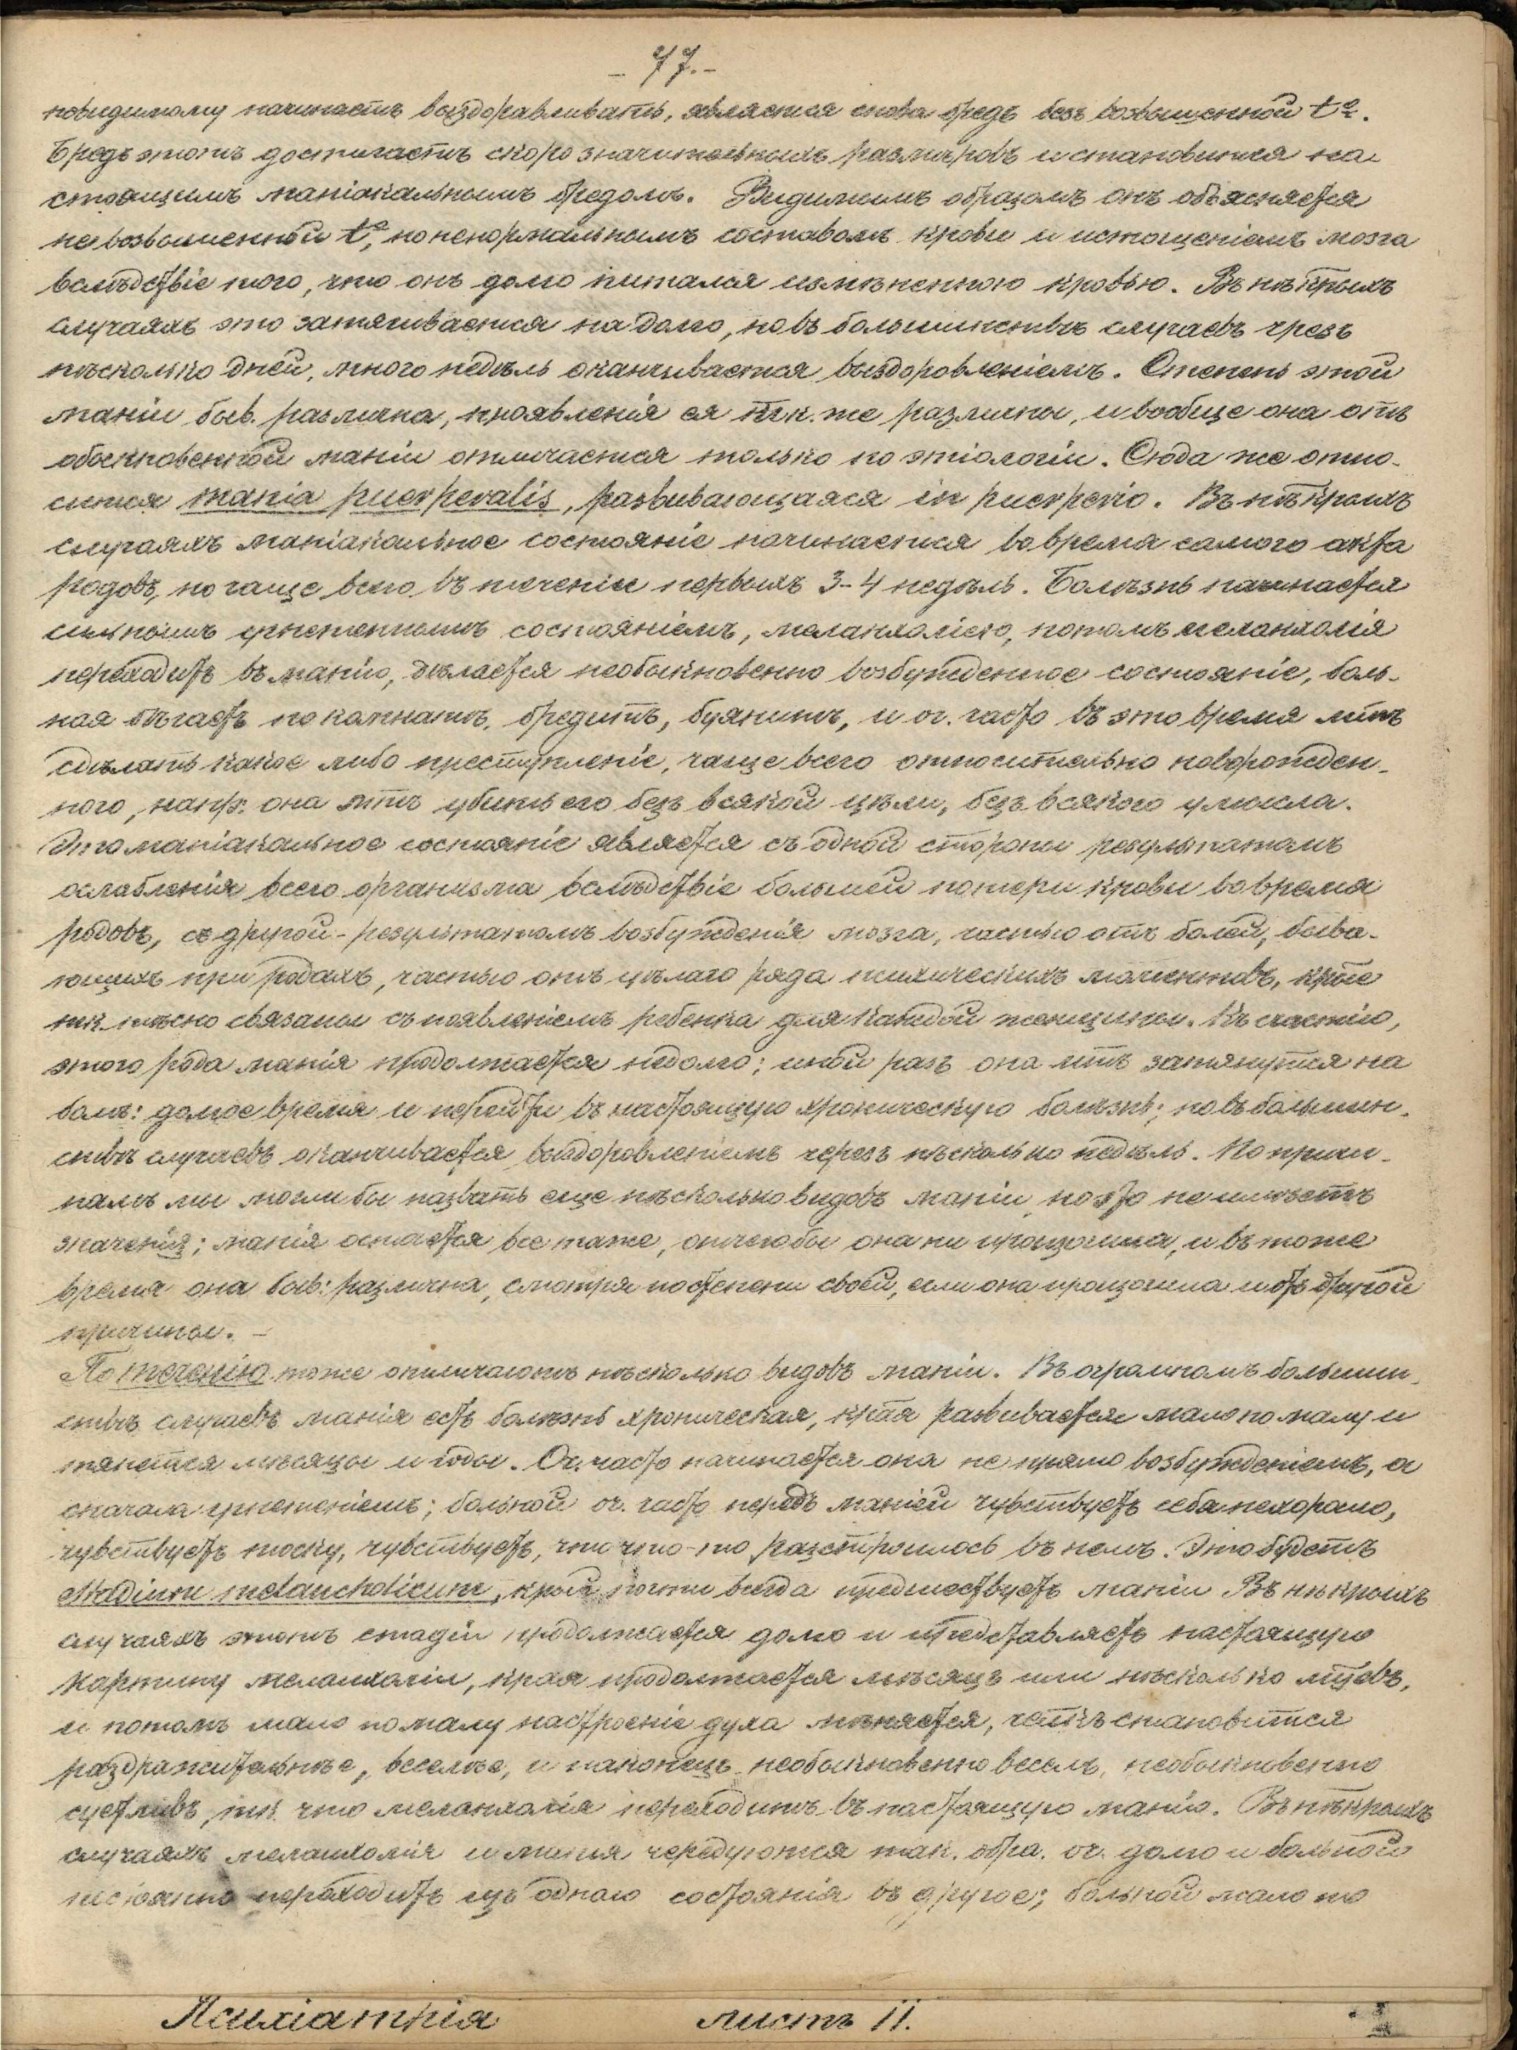 - 77. -
повидимому начинаетъ выздоравливать, является снова бредъ безъ возвышенной tº.
Бредъ этотъ достигаетъ скоро значительныхъ размѣровъ и становится на-
стоящимъ маніакальнымъ бредомъ. Видимымъ образомъ онъ объясняется
не возвышенной tº, но ненормальнымъ составомъ крови и истощеніемъ мозга
вслѣдствіе того, что онъ долго питался измѣненною кровью. Въ нѣкрыхъ
случаяхъ это затягивается на долго, но въ большинствѣ случаевъ чрезъ
нѣсколько дней, много недѣль оканчивается выздоровленіемъ. Степень этой
маніи быв. различна, проявленія ея тк. же различны, и вообще она отъ
обыкновенной маніи отличается только по этіологіи. Сюда же отно-
сится mania puerperalis, развивающаяся in puerperio. Въ нѣкрыхъ
случаяхъ маніакальное состояніе начинается во время самого акта
родовъ, но чаще всего въ теченіи первыхъ 3-4 недѣль. Болѣзнь начинается
сильнымъ угнетеннымъ состояніемъ, меланхоліею, потомъ меланхолія
переходитъ въ манію, дѣлается необыкновенно возбужденное состояніе, боль-
ная бѣгаетъ по комнатѣ, бредитъ, буянитъ, и оч. часто въ это время мтъ
сдѣлать какое либо преступленіе, чаще всего относительно новорожден-
ного, напр. она мтъ убить его безъ всякой цѣли, безъ всякого умысла.
Это маніакальное состояніе является съ одной стороны результатомъ
ослабленія всего организма вслѣдствіе большей потери крови во время
родовъ, съ другой - результатомъ возбужденія мозга, частью отъ болей, быва-
ющихъ при родахъ, частью отъ цѣлаго ряда психическихъ моментовъ, крые
тк. тѣсно связаны съ появленіемъ ребенка для каждой женщины. Къ счастію,
этого рода манія продолжается недолго; иной разъ она мтъ затянутся на
болѣ: долгое время и перейти въ настоящую хроническую болѣзнь; но въ большин-
ствѣ случаевъ оканчивается выздоровленіемъ черезъ нѣсколько недѣль. По причи-
намъ мы могли бы назвать еще нѣсколько видовъ маніи, но это не имѣетъ
значенія; манія остается все таже, отчего бы она ни произошла, и въ тоже
время она быв: различна, смотря по степени своей, если она произошла и отъ одной
причины. -
По теченію тоже отличаютъ нѣсколько видовъ маніи. Въ огромномъ большин-
ствѣ случаевъ манія есть болѣзнь хроническая, края развивается мало по малу и
тянется мѣсяцы и годы. Оч. часто начинается она не прямо возбужденіемъ, а
сначала угнетеніемъ; больной оч. часто передъ маніей чувствуетъ себя нехорошо,
чувствуетъ тоску, чувствуетъ, что что-то разстроилось въ немъ. Это будетъ
stadium melancholicum, крый почти всегда предшествуетъ маніи. Въ нѣкрыхъ
случаяхъ этотъ стадіи продолжается долго и представляетъ настоящую
картину меланхоліи, края продолжается мѣсяцъ или нѣсколько мцевъ,
и потомъ мало по малу настроеніе духа мѣняется, становится
раздражительнѣе, веселѣе, и наконецъ необыкновенно веселъ, необыкновенно
суетливъ, тк. что меланхолія переходитъ въ настоящую манію. Въ нѣкрыхъ
случаяхъ меланхолія и манія чередуются так. обра. оч. долго и больной
постоянно переходитъ изъ одного состоянія въ другое; больной мало по
Психіатрія листъ 11.